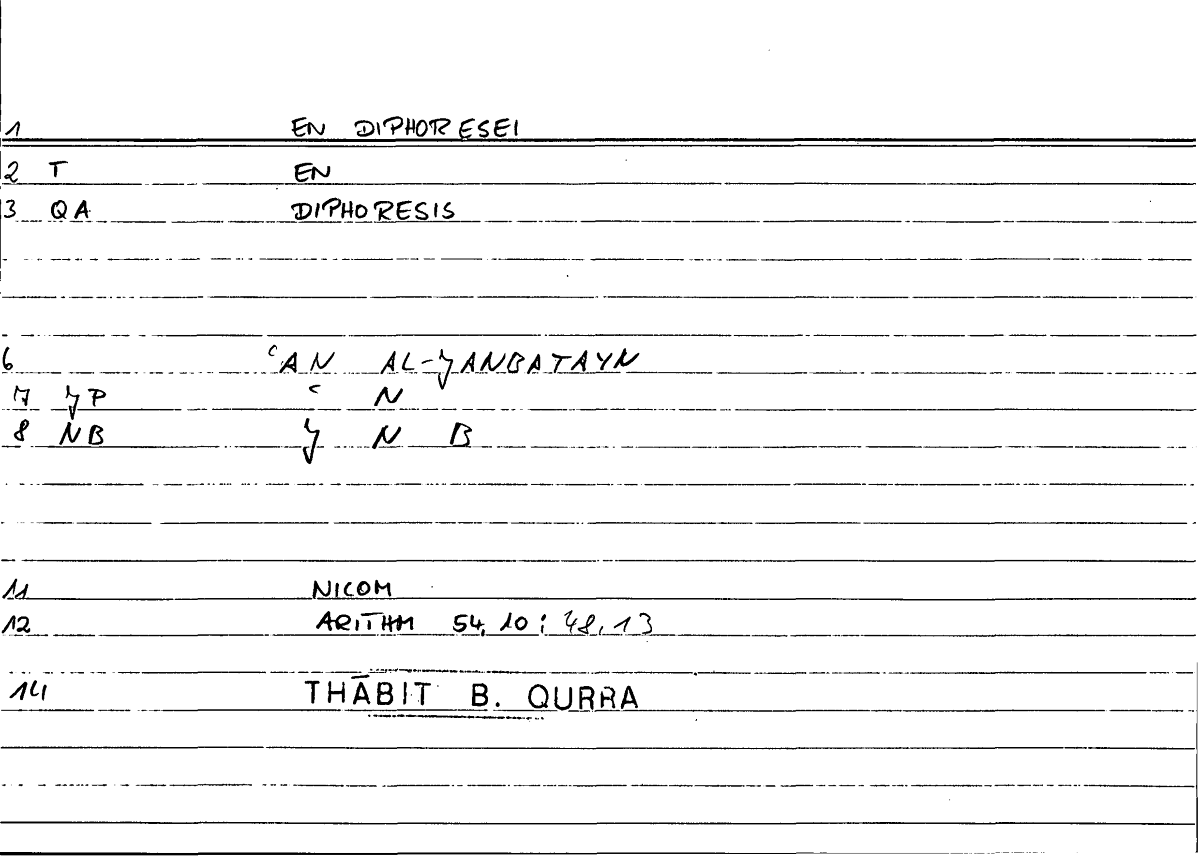 1 EN DIPHORESEI
2 T EN
3 QA DIPHORESIS
6 ʿAN AL-ȷANBATAYN
7 ȷP ʿ N
8 NB ȷ N B
11 NICOM
12 ARITHM 54,10 : 48,13
14 THĀBIT B. QURRA